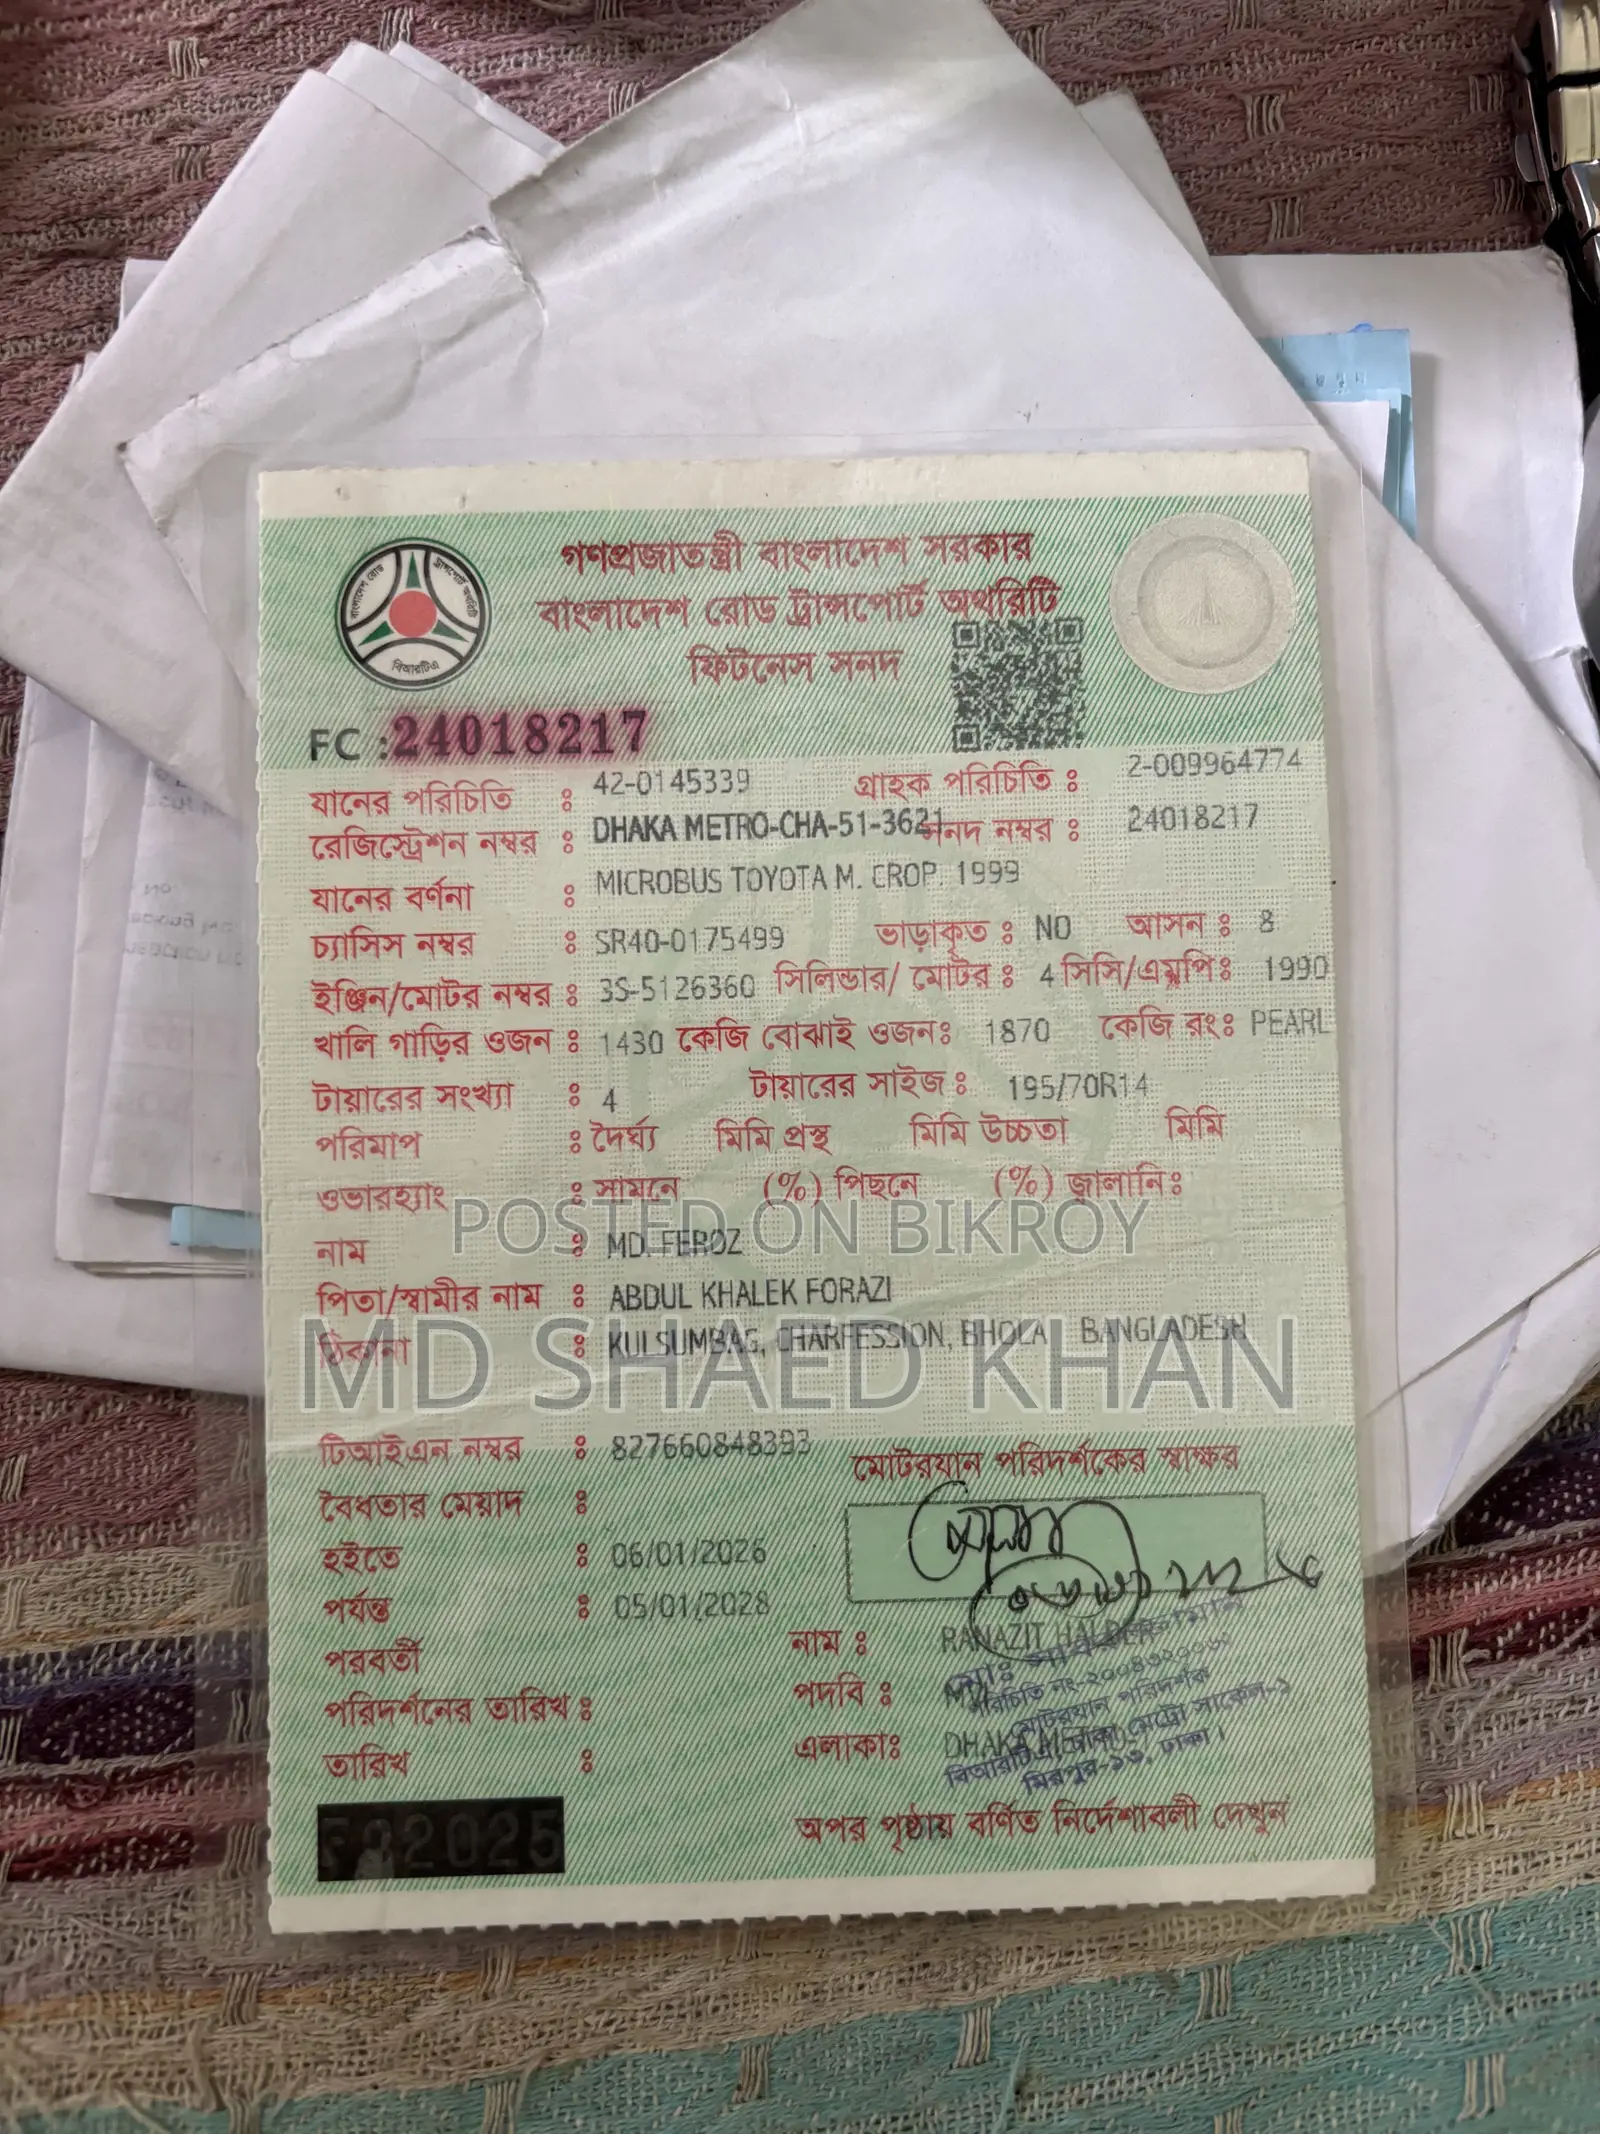 গণপ্রজাতন্ত্রী বাংলাদেশ সরকার
বাংলাদেশ রোড ট্রান্সপোর্ট অথরিটি
ফিটনেস সনদ
বাংলাদেশ রোড ট্রান্সপোর্ট অথরিটি
বিআরটিএ
FC : 24018217
যানের পরিচিতি : 42-0145339 গ্রাহক পরিচিতি : 2-009964774
রেজিস্ট্রেশন নম্বর : DHAKA METRO-CHA-51-3621 সনদ নম্বর : 24018217
যানের বর্ণনা : MICROBUS TOYOTA M. CROP. 1999
চ্যাসিস নম্বর : SR40-0175499 ভাড়াকৃত : NO আসন : 8
ইঞ্জিন/মোটর নম্বর : 3S-5126360 সিলিন্ডার/ মোটর : 4 সিসি/এমপি: 1990
খালি গাড়ির ওজন : 1430 কেজি বোঝাই ওজন: 1870 কেজি রং: PEARL
টায়ারের সংখ্যা : 4 টায়ারের সাইজ : 195/70R14
পরিমাপ : দৈর্ঘ্য মিমি প্রস্থ মিমি উচ্চতা মিমি
ওভারহ্যাং : সামনে (%) পিছনে (%) জ্বালানি :
POSTED ON BIKROY
নাম : MD. FEROZ
পিতা/স্বামীর নাম : ABDUL KHALEK FORAZI
ঠিকানা : KULSUMBAG, CHARFESSION, BHOLA, BANGLADESH
MD SHAED KHAN
টিআইএন নম্বর : 827660848393 মোটরযান পরিদর্শকের স্বাক্ষর
বৈধতার মেয়াদ :
হইতে : 06/01/2026
পর্যন্ত : 05/01/2028
নাম : RANAZIT HALDER
পরবর্তী
পরিদর্শনের তারিখ :
পদবি :
পরিচিতি নং-
মোটরযান পরিদর্শক
তারিখ :
এলাকা: DHAKA METRO
বিআরটিএ, ঢাকা মেট্রো সার্কেল-১
মিরপুর-১৩, ঢাকা।
2025
অপর পৃষ্ঠায় বর্ণিত নির্দেশাবলী দেখুন